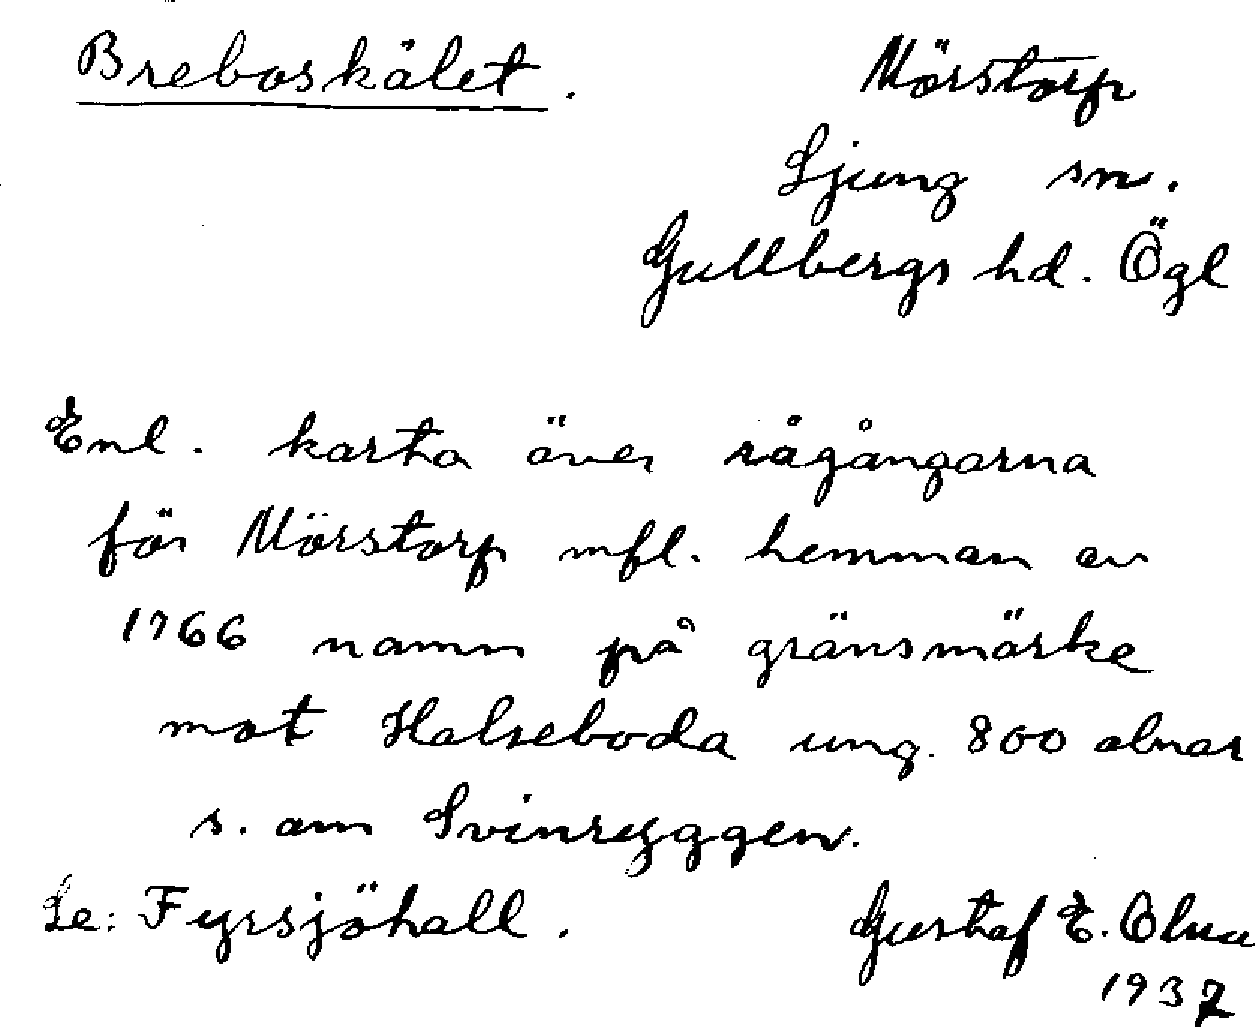 Breboskälet. Mörstorp
Ljung sn.
Gullbergs hd. Ögl
Enl. karta över rågångarna
för Mörstorp mfl. hemman av
1766 namn på gränsmärke
mot Halseboda ung. 800 alnar
s. om Svinryggen.
Se: Fyrsjöhall. Gustaf E. Olsson
1937